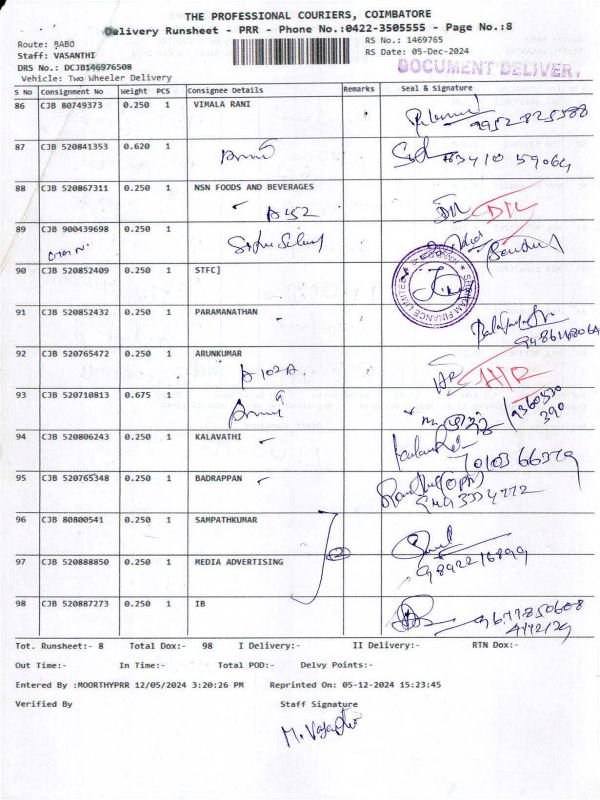 THE PROFESSIONAL COURIERS, COIMBATORE
Delivery Runsheet - PRR - Phone No.:0422-3505555 - Page No.:8
Route: BABU
RS No.: 1469765
Staff: VASANTHI
RS Date: 05-Dec-2024
DRS No.: DCJB146976508
DOCUMENT DELIVER.
Vehicle: Two Wheeler Delivery
S No Consignment No Weight PCS Consignee Details Remarks Seal & Signature
86 CJB 80749373 0.250 1 VIMALA RANI
9952825588
87 CJB 520841353 0.620 1
88 CJB 520867311 0.250 1 NSN FOODS AND BEVERAGES
A152
89 CJB 900439698 0.250 1
90 CJB 520852409 0.250 1 STFC]
SHRIRAM FINANCE LIMITED
91 CJB 520852432 0.250 1 PARAMANATHAN
92 CJB 520765472 0.250 1 ARUNKUMAR
A102A
93 CJB 520710813 0.675 1
9360530
390
94 CJB 520806243 0.250 1 KALAVATHI
7010366379
95 CJB 520765348 0.250 1 BADRAPPAN
96 CJB 80800541 0.250 1 SAMPATHKUMAR
9892216899
97 CJB 520888850 0.250 1 MEDIA ADVERTISING
98 CJB 520887273 0.250 1 IB
9677850608
Tot. Runsheet:- 8 Total Dox:- 98 I Delivery:- II Delivery:- RTN Dox:-
Out Time:- In Time:- Total POD:- Delvy Points:-
Entered By :MOORTHYPRR 12/05/2024 3:20:26 PM Reprinted On: 05-12-2024 15:23:45
Verified By Staff Signature